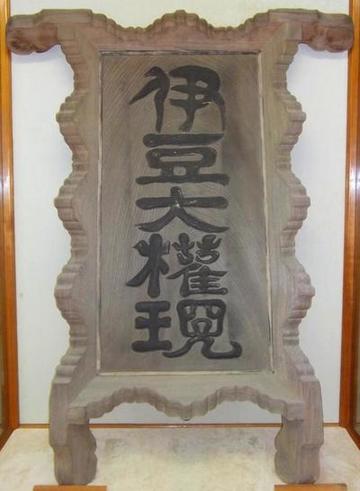 伊豆大權現